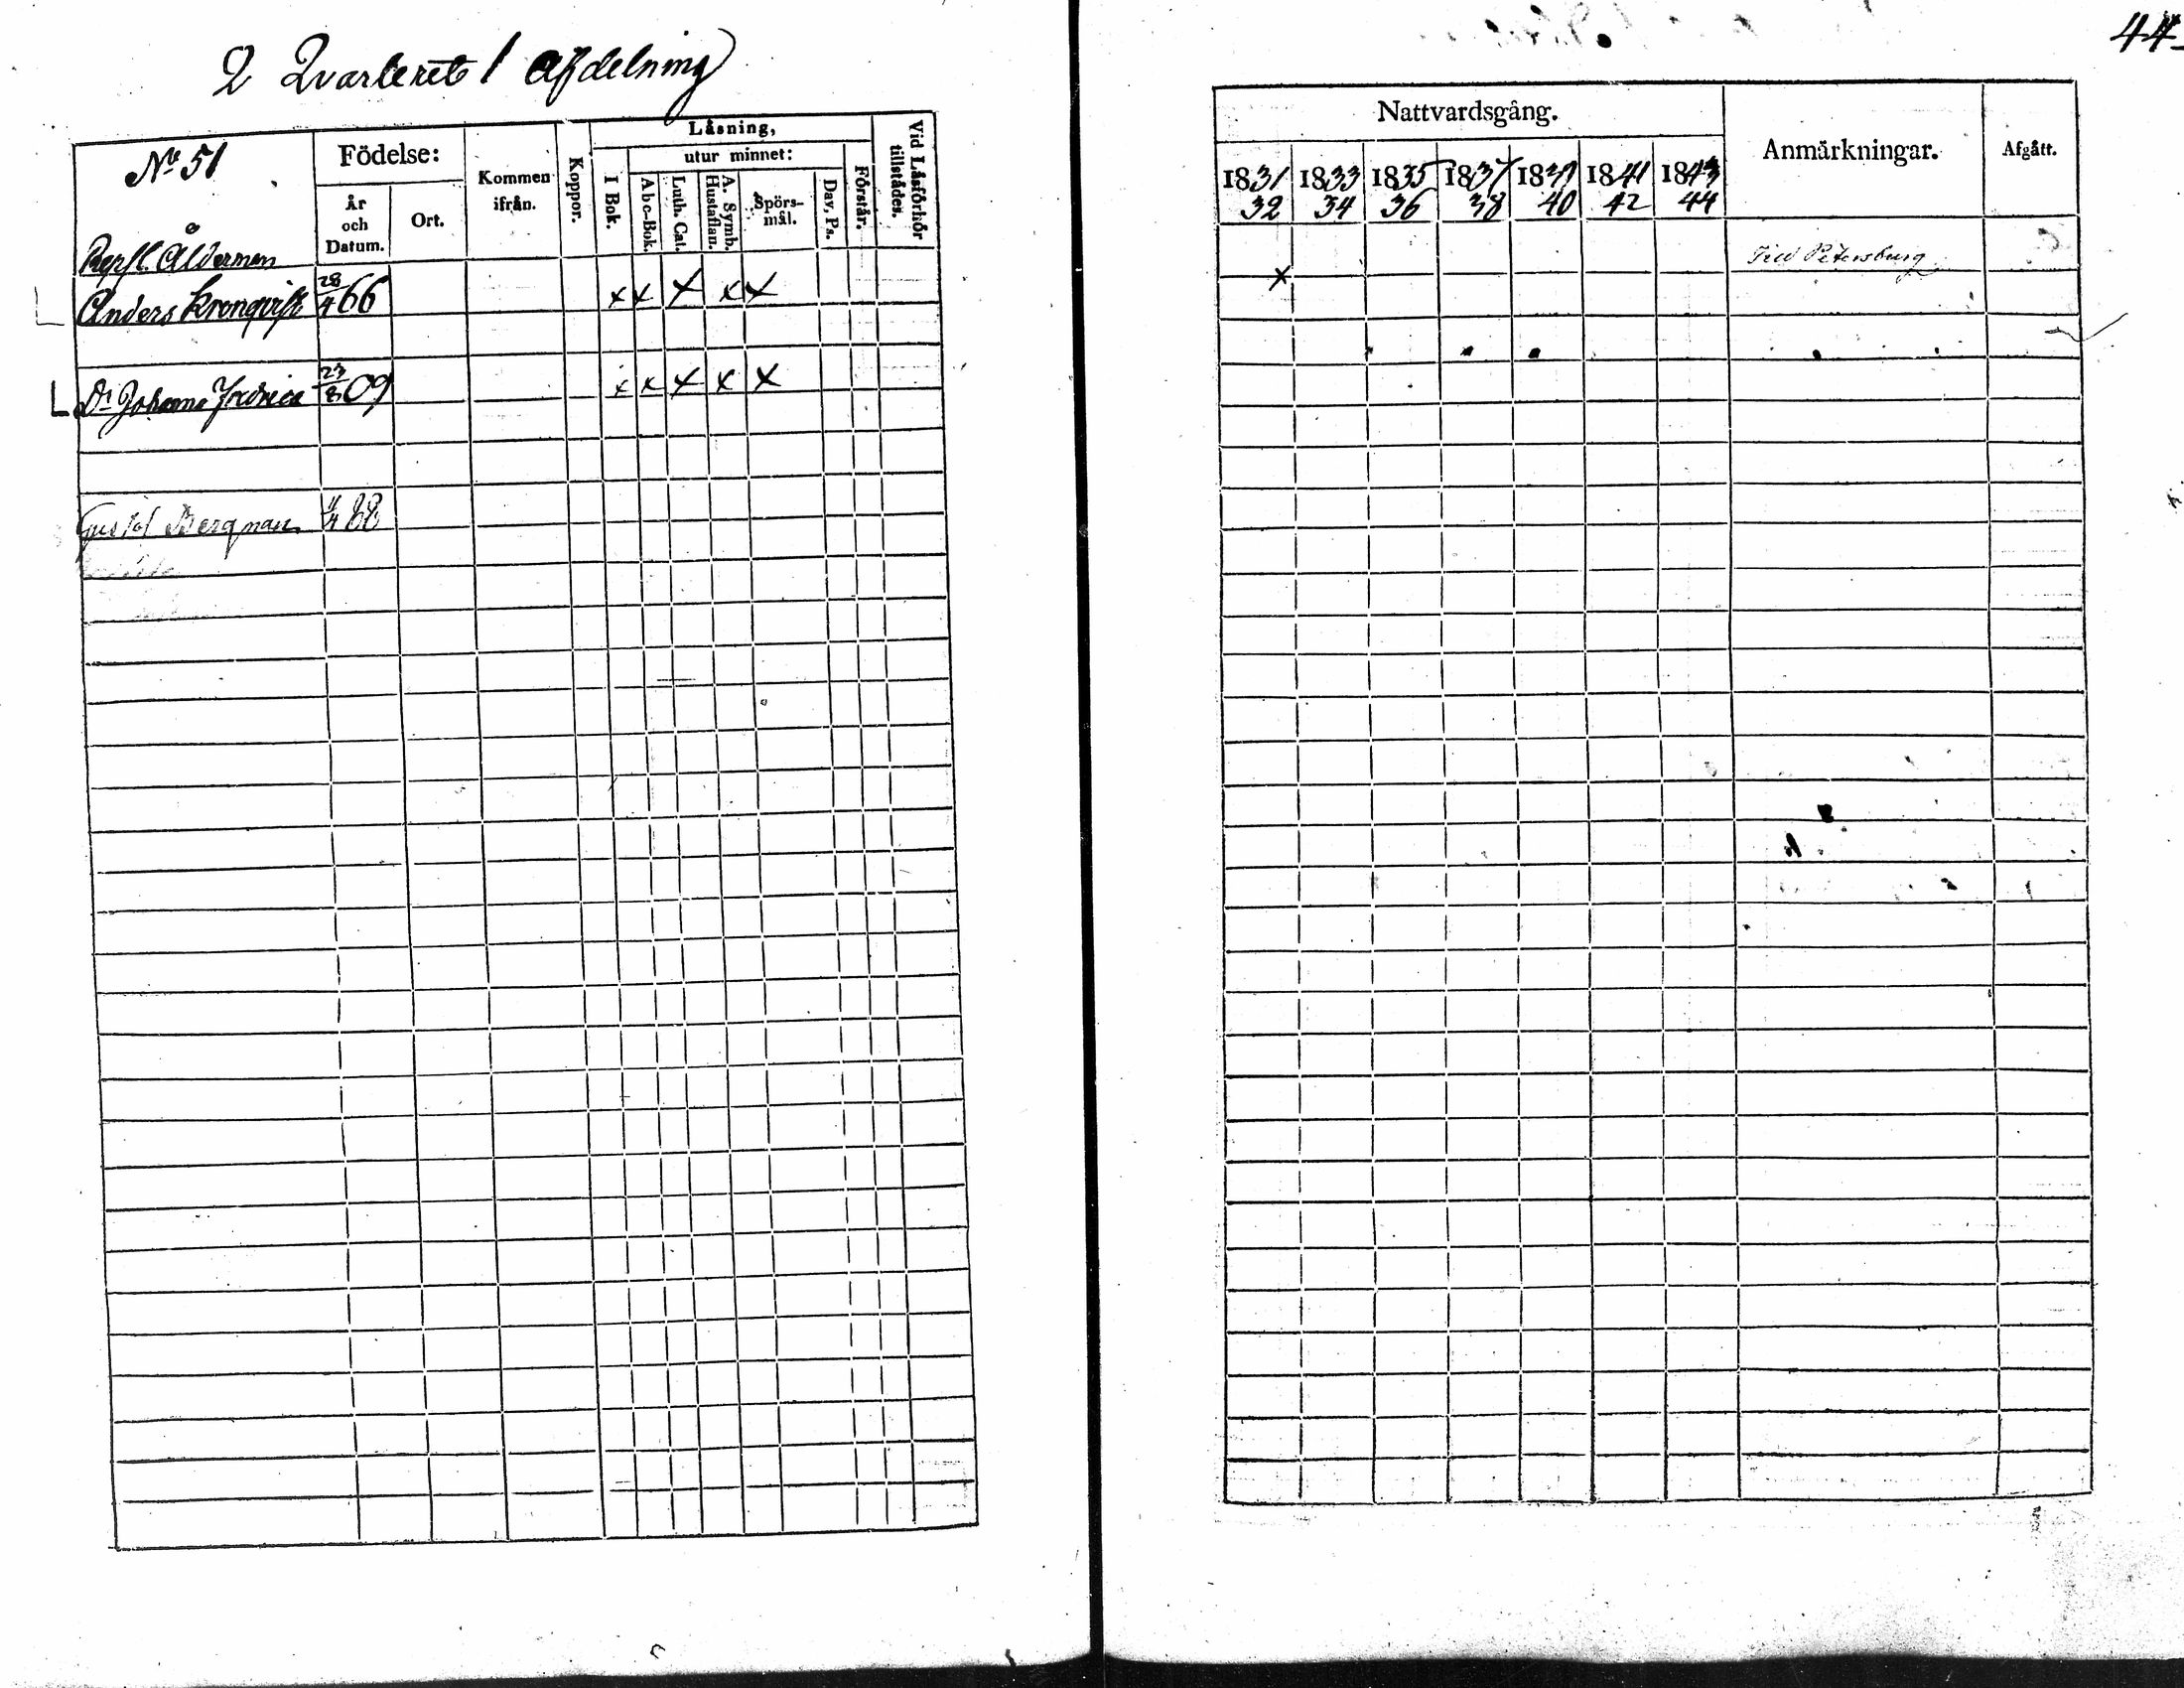 2 Qvarteret 1 Afdelning
44
No 51
Födelse:
År och Datum.
Ort.
Kommen ifrån.
Koppor.
Läsning,
I Bok.
utur minnet:
Abc-Bok.
Luth. Cat.
A. Symb. Hustaflan.
Spörs-mål.
Dav. Ps.
Förstår.
Vid Läsförhör tillstädes.
Nattvardsgång.
1831 1833 1835 1837 1839 1841 1843
32 34 36 38 40 42 44
Anmärkningar.
Afgått.
Repsl. Ålderman
Anders Kronqvist 28/4 66 x x x x x x
Petersburg
Dr Johanna Fredrica 23/8 09 x x x x x
Gustaf Bergman 11/4 88